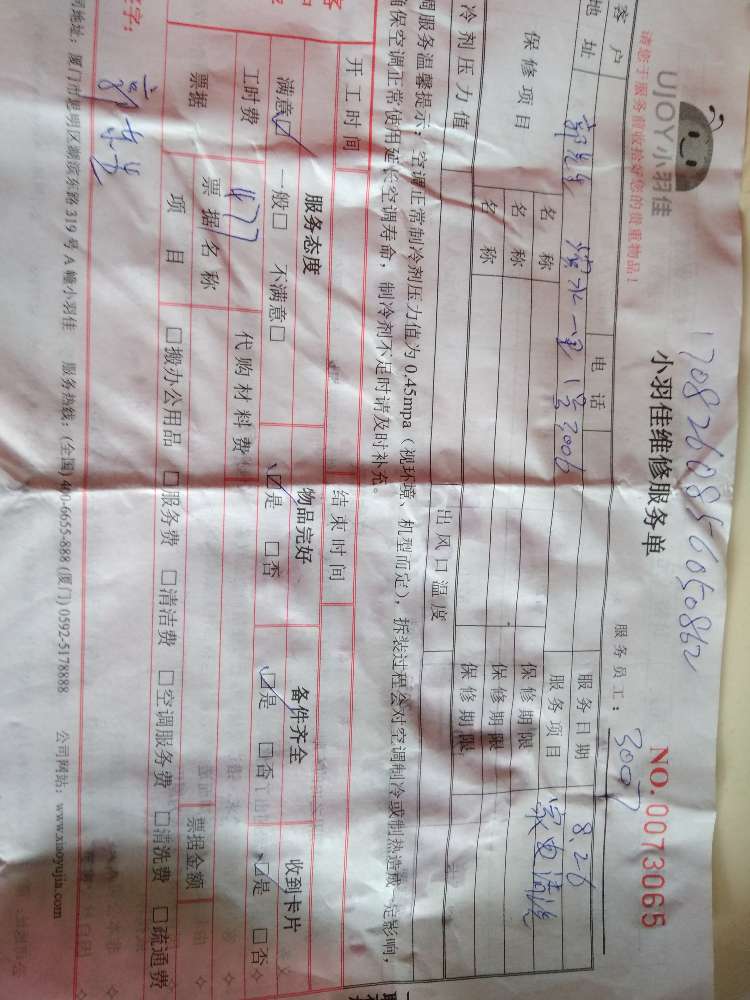 1708260856050862
UJOY小羽佳
小羽佳维修服务单
NO. 0073065
请您于服务前收拾好您的贵重物品!
服务员工: 3007
客户 电话 服务日期 8.26
地址 1号3006 服务项目 家电清洗
保修项目 名称 保修期限
名称 保修期限
名称 保修期限
冷剂压力值 出风口温度
调服务温馨提示: 空调正常制冷剂压力值为0.45mpa (视环境、机型而定), 拆装过程会对空调制冷或制热造成一定影响,
确保空调正常使用延长空调寿命, 制冷剂不足时请及时补充。
开工时间 结束时间
服务态度 物品完好 备件齐全 收到卡片
满意☑ 一般□ 不满意□ ☑是 □否 ☑是 □否 ☑是 □否
工时费 477 代购材料费
票据 票据名称 票据金额
项目 □搬办公用品 □服务费 □清洁费 □空调服务费 □清洗费 □疏通费
签字:
司地址: 厦门市思明区湖滨东路319号A幢小羽佳 服务热线: (全国) 400-6655-888 (厦门) 0592-5178888 公司网站: www.xiaoyujia.com